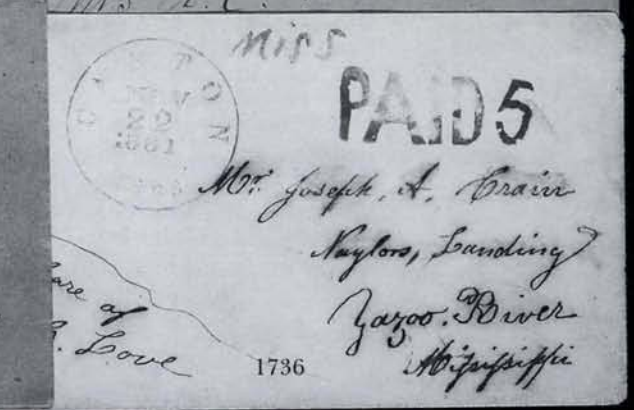 Miss
CANTON
NOV
22
1861
PAID 5
Mr. Joseph, A, Crain
Naylors, Landing
Yazoo. River
Mississippi
are of
Love
1736